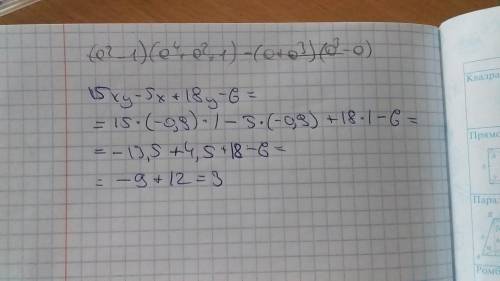 (a²-1)(a⁴+a²+1)-(a+a³)(a³-a)
15xy-5x+18y-6=
=15·(-0,9)·1-5·(-0,9)+18·1-6=
=-13,5+4,5+18-6=
=-9+12=3
Квадра
Прямо
Парал
Ромб